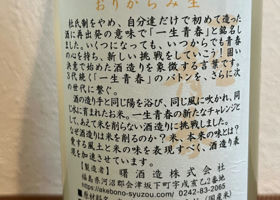 おりがらみ生
杜氏制をやめ、自分達だけで初めて造った
酒に再出発の意味で「一生青春」と銘名し
ました。いくつになっても、いつからでも青春
の心を持ち、新しい挑戦をしていこう！固い
決意で始めた酒造りを象徴する言葉です。
3代続く「一生青春」のバトンを、さらに次
の世代に繋ぐ。
酒の造り手と同じ陽を浴び、同じ風に吹かれ、同
じ水に育まれたお米。一生青春の新たなチャレンジと
して、あえて米を削らない酒造りに挑戦している。
なぜ酒造りは米を削るのか？米、本来の味とは？
愛する風土と米の味を表現すべく、酒造り
を加速させています。
製造者 曙酒造株式会社
福島県河沼郡会津坂下町字戌亥乙2番地
https://akebono-syuzou.com/ 0242-83-2065